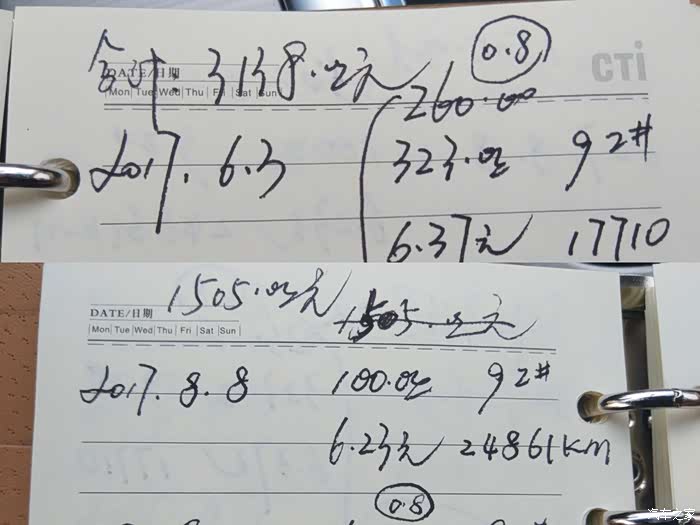 合计: 3138.00元 0.8
DATE/日期 CTi
Mon Tue Wed Thu Fri Sat Sun
260.00
2017.6.3 323.00 92#
6.37元 17710
1505.00元
DATE/日期 1505.00元
Mon Tue Wed Thu Fri Sat Sun
2017.8.8 100.00 92#
6.23元 24861KM
0.8
汽车之家